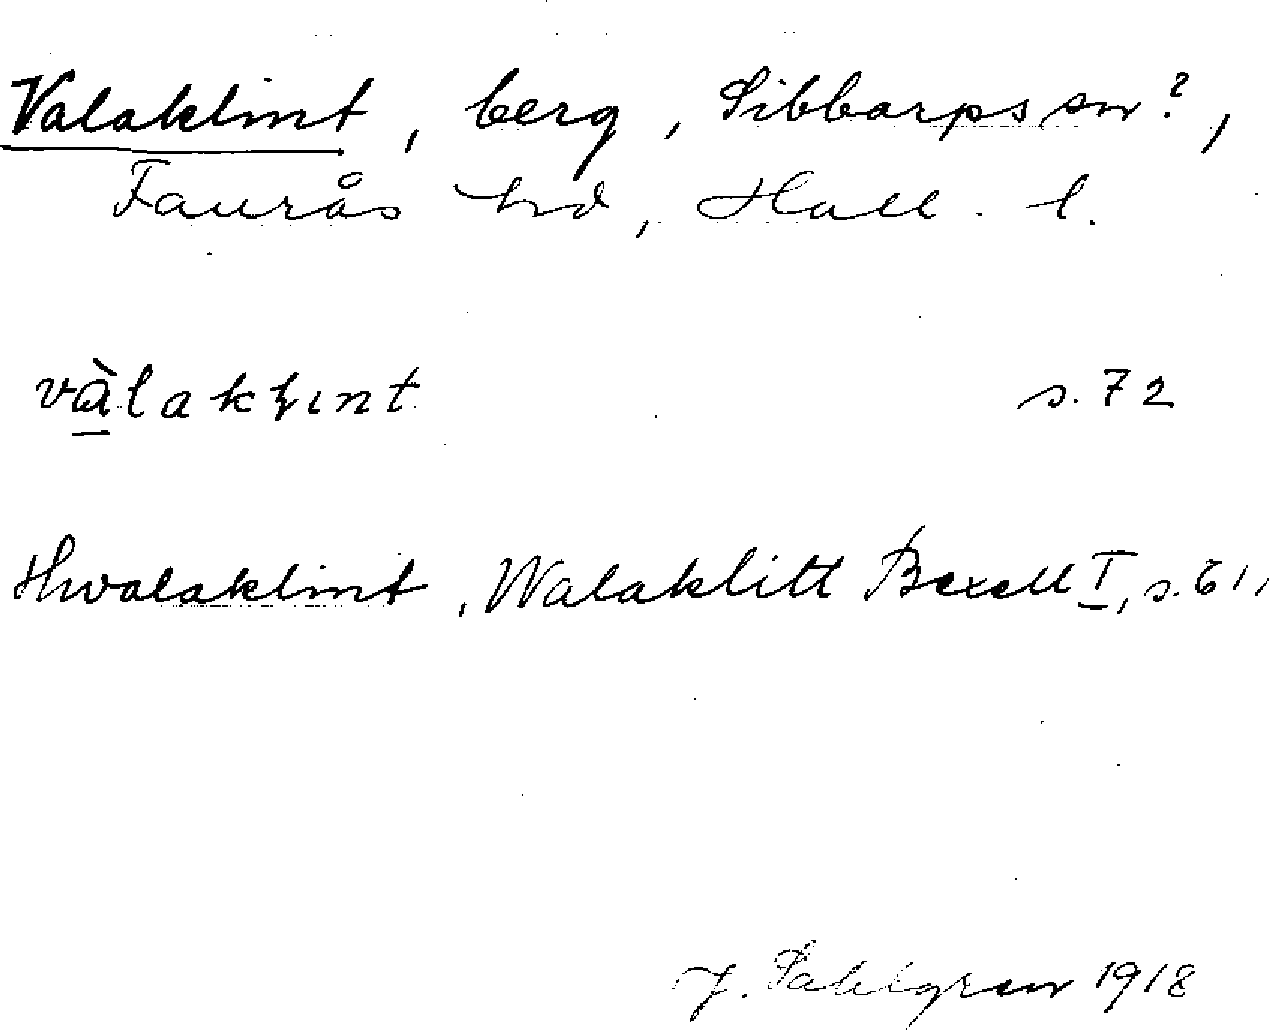 Valaklint, berg, Sibbarps sn?,
Faurås hd, Hall. l.
vàlakłınt s. 72
Hwalaklint, Walaklitt Bexell I, s. 61,
J. Sahlgren 1918